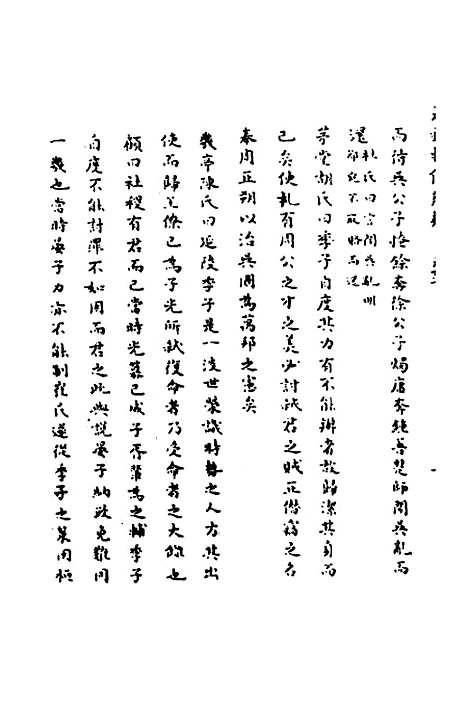 而待吳公子掩餘奔徐公子燭庸奔鍾吾楚師聞吳亂而
還
杜氏曰言聞吳亂明
郤宛不取賂而還
茅堂胡氏曰季子自度其力有不能辦者故歸潔其身而
已矣使札有周公之才之美必討弒君之賊正僭竊之名
奉周正朔以治吳國為萬邦之憲矣
幾亭陳氏曰延陵季子是一淡世榮識時勢之人方其出
使而歸王僚已為子光所弒復命者乃受命者之大餘也
顧曰社稷有君而已當時光篡已成子胥輩為之輔季子
自度不能討罪不如因而君之此與說晏子納政免難同
一幾也當時晏子力亦不能制崔氏遂從季子之策因桓